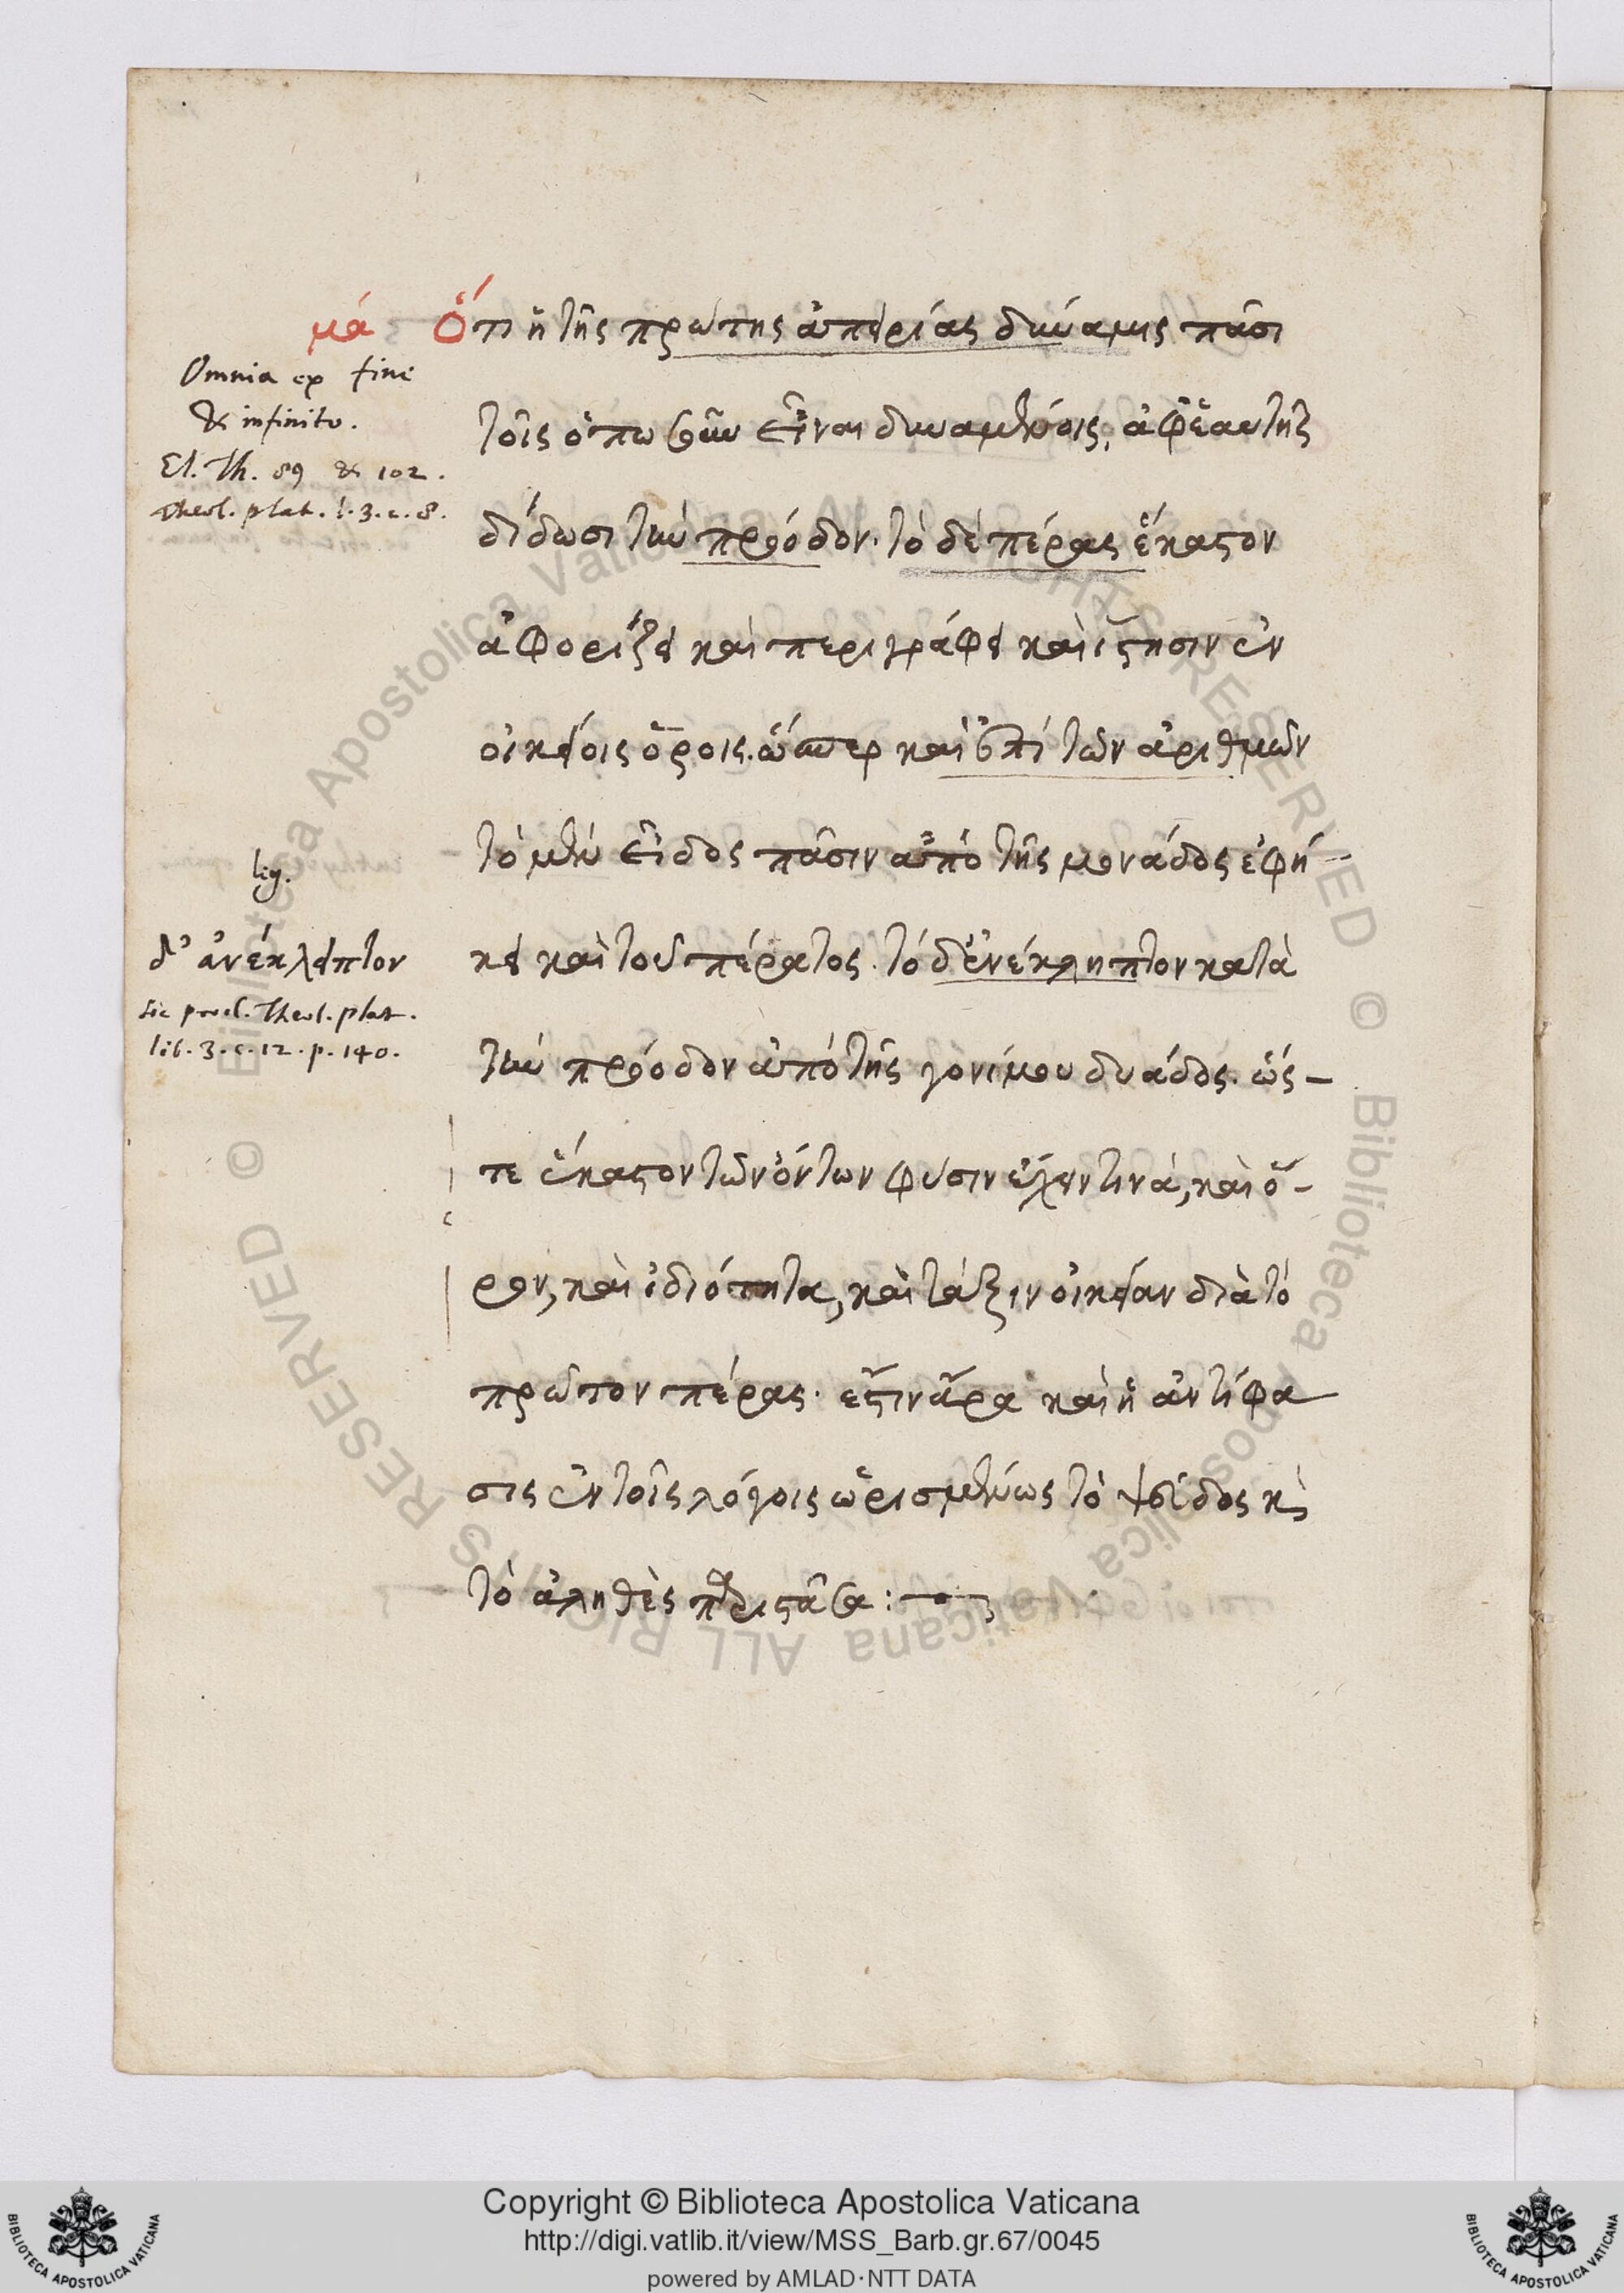 μά Ὅτι ἡ τῆς πρώτης ἀπειρίας δύναμις πᾶσι
Omnia ex fine
& infinito.
El. Th. 89 & 102.
Theol. plat. l. 3. c. 8.
τοῖς ὁπωσοῦν εἶναι δυναμένοις, ἀφ' ἑαυτῆς
δίδωσι τὴν πρόοδον. τὸ δὲ πέρας ἕκαστον
ἀφορίζει καὶ περιγράφει καὶ ἵστησιν ἐν
οἰκείοις ὅροις. ὥσπερ καὶ ἐπὶ τῶν ἀριθμῶν
τὸ μὲν εἶδος πᾶσιν ἀπὸ τῆς μονάδος ἐφή-
leg.
δ' ἀνέκλειπτον
sic procl. Theol. plat.
lib. 3. c. 12. p. 140.
κει καὶ τοῦ πέρατος. τὸ δ' ἐνέκληπτον κατὰ
τὴν πρόοδον ἀπὸ τῆς γονίμου δυάδος. ὥς-
τε ἕκαστον τῶν ὄντων φύσιν ἔχειν τινὰ, καὶ ὅ-
ρον, καὶ ἰδιότητα, καὶ τάξιν οἰκείαν διὰ τὸ
πρῶτον πέρας. ἔστιν ἄρα καὶ ἡ ἀντίφα
σις ἐν τοῖς λόγοις ὡρισμένως τὸ ψεῦδος κὶ
τὸ ἀληθὲς περιστᾶσα :
Copyright © Biblioteca Apostolica Vaticana
http://digi.vatlib.it/view/MSS_Barb.gr.67/0045
powered by AMLAD·NTT DATA
BIBLIOTECA APOSTOLICA VATICANA
BIBLIOTECA APOSTOLICA VATICANA
© Biblioteca Apostolica Vaticana ALL RIGHTS RESERVED
© Biblioteca Apostolica Vaticana ALL RIGHTS RESERVED